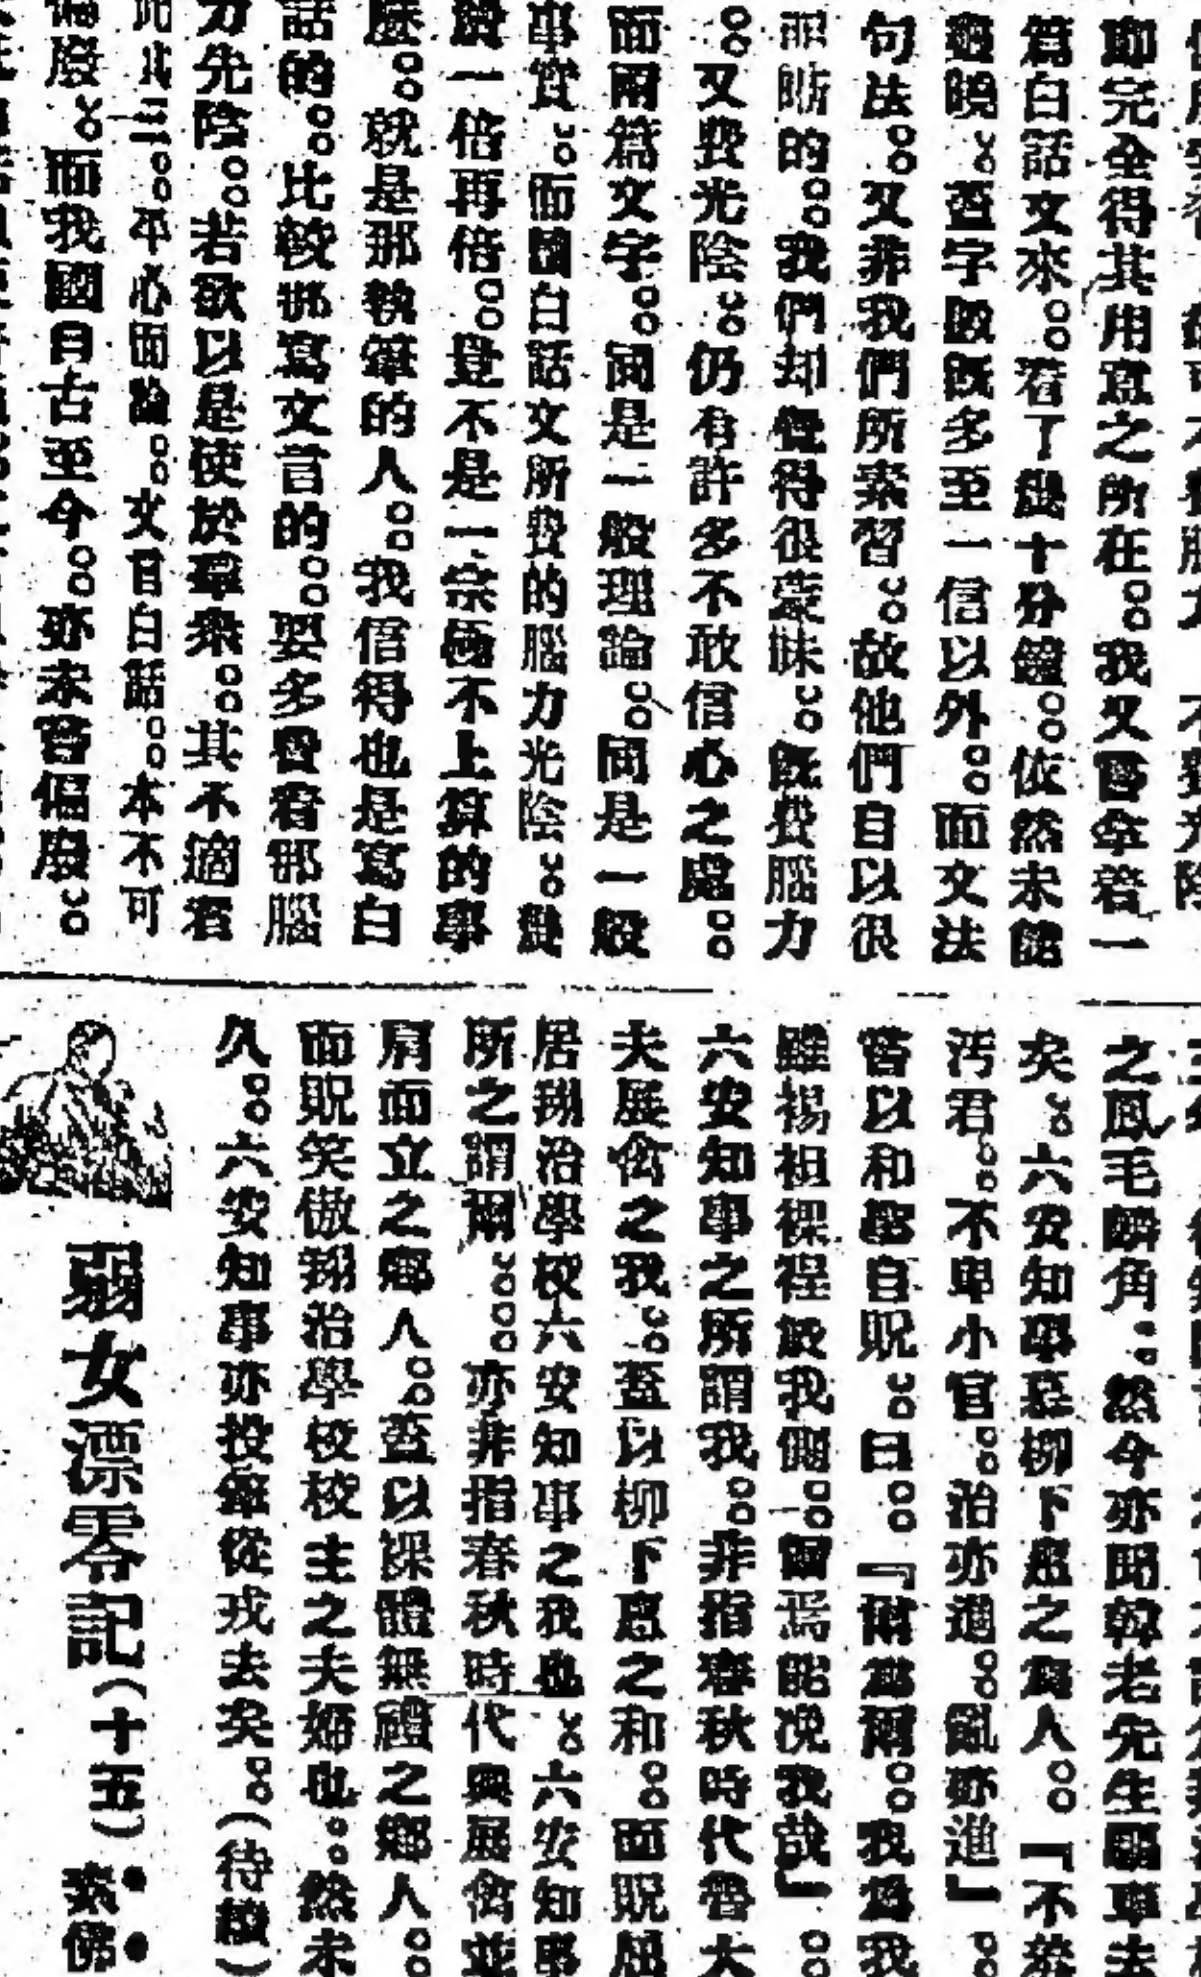 卽完全得其用意之所在。。我又嘗拿着一
篇白話文來。。看了幾十分鐘。。依然未能
通曉。。查字數旣多至一倍以外。。而文法
句法。。又非我們所素習。。故他們自以很
昭晰的。。我們却覺得很蒙昧。。旣費腦力
。。又費光陰。。仍有許多不敢信心之處。。
而兩篇文字。。同是一般理論。。同是一般
事實。。而閱白話文所費的腦力光陰。。變
於一倍再倍。。豈不是一宗極不上算的事
麼。。就是那執筆的人。。我信得也是寫白
話的。。比較那寫文言的。。要多費着那腦
力光陰。。若欲以是使於羣衆。。其不適者
此其三。。平心而論。。文言白話。。本不可
偏廢。。而我國自古至今。。亦未嘗偏廢。。
之鳳毛麟角。。然今亦聞韓老先生驅車去
矣。。六安知事惡柳下惠之爲人。。「不羞
汚君。。不卑小官。。治亦進。。亂亦進」。。
嘗以和聖自況。。曰。。『爾爲爾。。我爲我
雖裼袒裸裎於我側。。爾焉能凂我哉」。。
六安知事之所謂我。。非指春秋時代魯大
夫展禽之我。。蓋以柳下惠之和。。而況屈
居翊治學校六安知事之我也。。六安知事
所之謂爾。。。。亦非指春秋時代與展禽並
肩而立之鄕人。。蓋以裸體無禮之鄕人。。
而況笑傲翊治學校校主之夫婦也。。然未
久。。六安知事亦投筆從戎去矣。。(待續)
弱女漂零記(十五)素佛